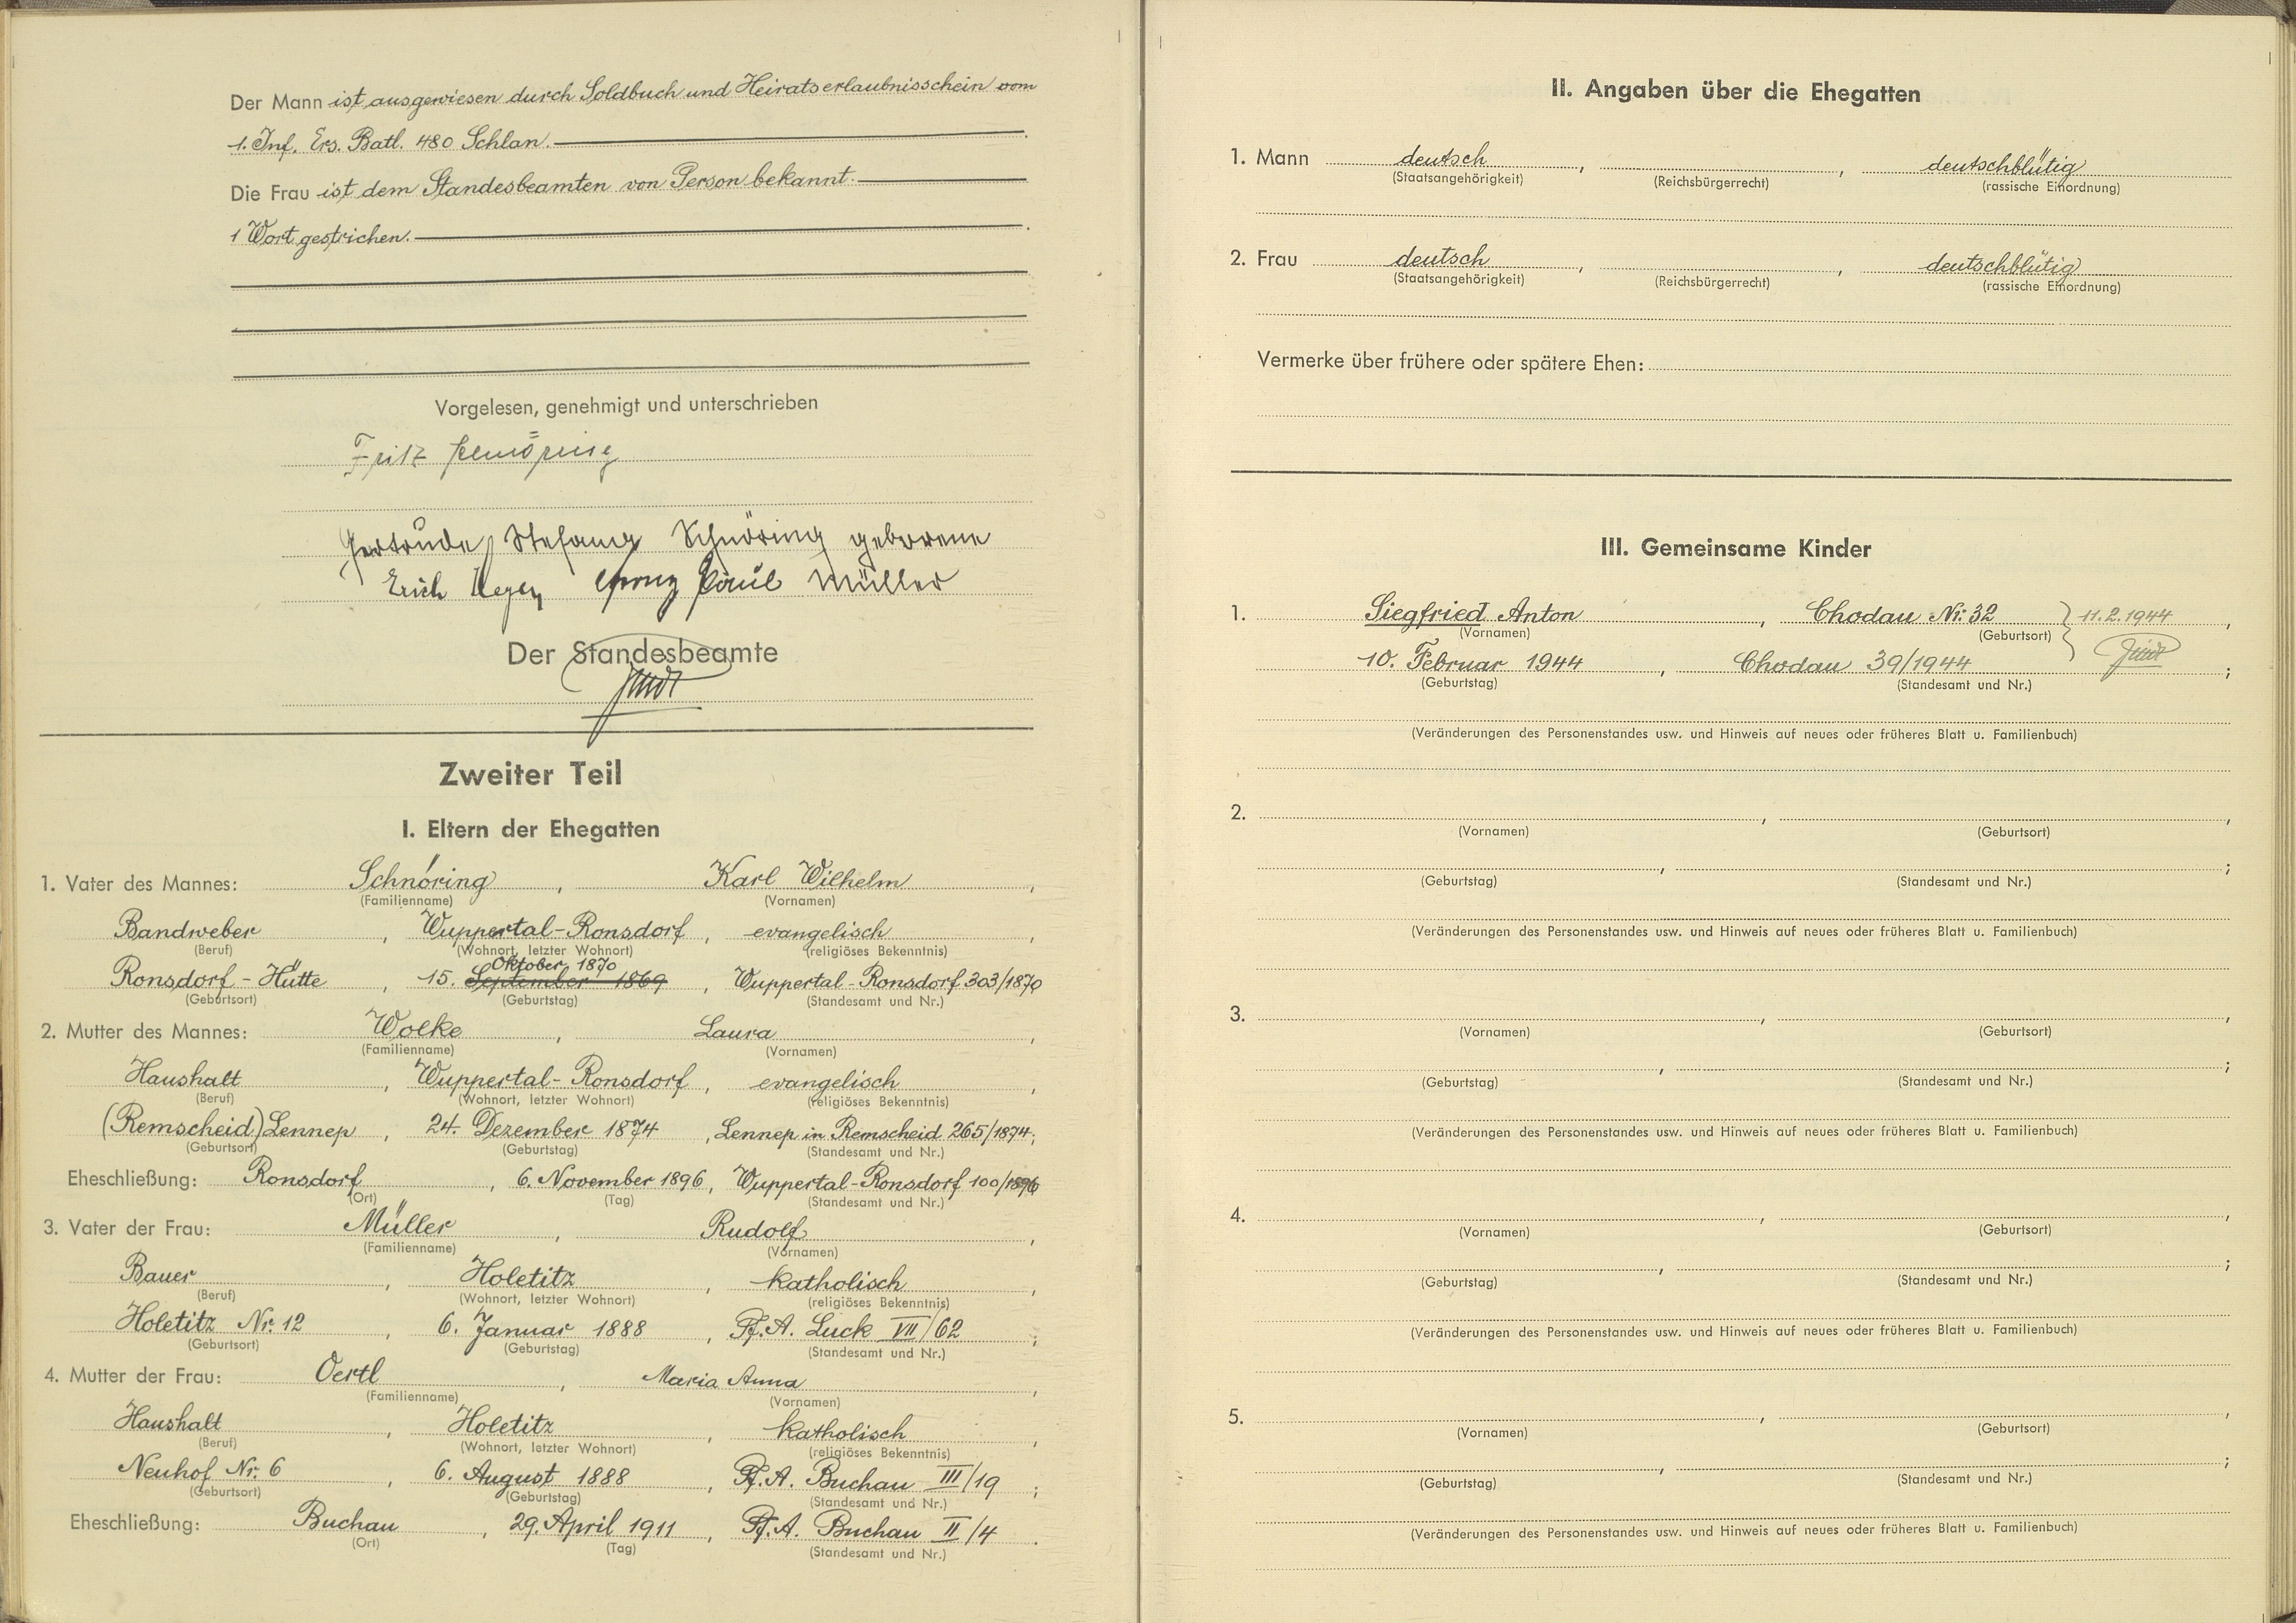 Der Mann ist ausgewiesen durch Soldbuch und Heiratserlaubnisschein vom
1. Inf. Ers. Batl. 480 Schlan.
Die Frau ist dem Standesbeamten von Person bekannt.
1 Wort gestrichen.
Vorgelesen, genehmigt und unterschrieben
Fritz Schnöring
Gertrude Stefanie Schnöring geborene
Erich Franz Paul Müller
Der Standesbeamte
Zweiter Teil
I. Eltern der Ehegatten
1. Vater des Mannes: Schnöring, Karl Wilhelm,
(Familienname) (Vornamen)
Bandweber, Wuppertal-Ronsdorf, evangelisch,
(Beruf) (Wohnort, letzter Wohnort) (religiöses Bekenntnis)
Oktober 1870
Ronsdorf-Hütte, 15. September 1869, Wuppertal-Ronsdorf 303/1870
(Geburtsort) (Geburtstag) (Standesamt und Nr.)
2. Mutter des Mannes: Wolke, Laura,
(Familienname) (Vornamen)
Haushalt, Wuppertal-Ronsdorf, evangelisch,
(Beruf) (Wohnort, letzter Wohnort) (religiöses Bekenntnis)
(Remscheid) Lennep, 24. Dezember 1874, Lennep in Remscheid 265/1874;
(Geburtsort) (Geburtstag) (Standesamt und Nr.)
Eheschließung: Ronsdorf, 6. November 1896, Wuppertal-Ronsdorf 100/1896
(Ort) (Tag) (Standesamt und Nr.)
3. Vater der Frau: Müller, Rudolf,
(Familienname) (Vornamen)
Bauer, Holetitz, katholisch,
(Beruf) (Wohnort, letzter Wohnort) (religiöses Bekenntnis)
Holetitz Nr. 12, 6. Januar 1888, Pf.A. Luck VII/62;
(Geburtsort) (Geburtstag) (Standesamt und Nr.)
4. Mutter der Frau: Oertl, Maria Anna,
(Familienname) (Vornamen)
Haushalt, Holetitz, katholisch,
(Beruf) (Wohnort, letzter Wohnort) (religiöses Bekenntnis)
Neuhof Nr. 6, 6. August 1888, Pf.A. Buchau III/19;
(Geburtsort) (Geburtstag) (Standesamt und Nr.)
Eheschließung: Buchau, 29. April 1911, Pf.A. Buchau II/4.
(Ort) (Tag) (Standesamt und Nr.)
II. Angaben über die Ehegatten
1. Mann deutsch, , deutschblütig
(Staatsangehörigkeit) (Reichsbürgerrecht) (rassische Einordnung)
2. Frau deutsch, , deutschblütig
(Staatsangehörigkeit) (Reichsbürgerrecht) (rassische Einordnung)
Vermerke über frühere oder spätere Ehen:
III. Gemeinsame Kinder
1. Siegfried Anton, Chodau Nr. 32 } 11.2.1944,
(Vornamen) (Geburtsort)
10. Februar 1944, Chodau 39/1944;
(Geburtstag) (Standesamt und Nr.)
(Veränderungen des Personenstandes usw. und Hinweis auf neues oder früheres Blatt u. Familienbuch)
2. , ,
(Vornamen) (Geburtsort)
, ;
(Geburtstag) (Standesamt und Nr.)
(Veränderungen des Personenstandes usw. und Hinweis auf neues oder früheres Blatt u. Familienbuch)
3. , ,
(Vornamen) (Geburtsort)
, ;
(Geburtstag) (Standesamt und Nr.)
(Veränderungen des Personenstandes usw. und Hinweis auf neues oder früheres Blatt u. Familienbuch)
4. , ,
(Vornamen) (Geburtsort)
, ;
(Geburtstag) (Standesamt und Nr.)
(Veränderungen des Personenstandes usw. und Hinweis auf neues oder früheres Blatt u. Familienbuch)
5. , ,
(Vornamen) (Geburtsort)
, ;
(Geburtstag) (Standesamt und Nr.)
(Veränderungen des Personenstandes usw. und Hinweis auf neues oder früheres Blatt u. Familienbuch)